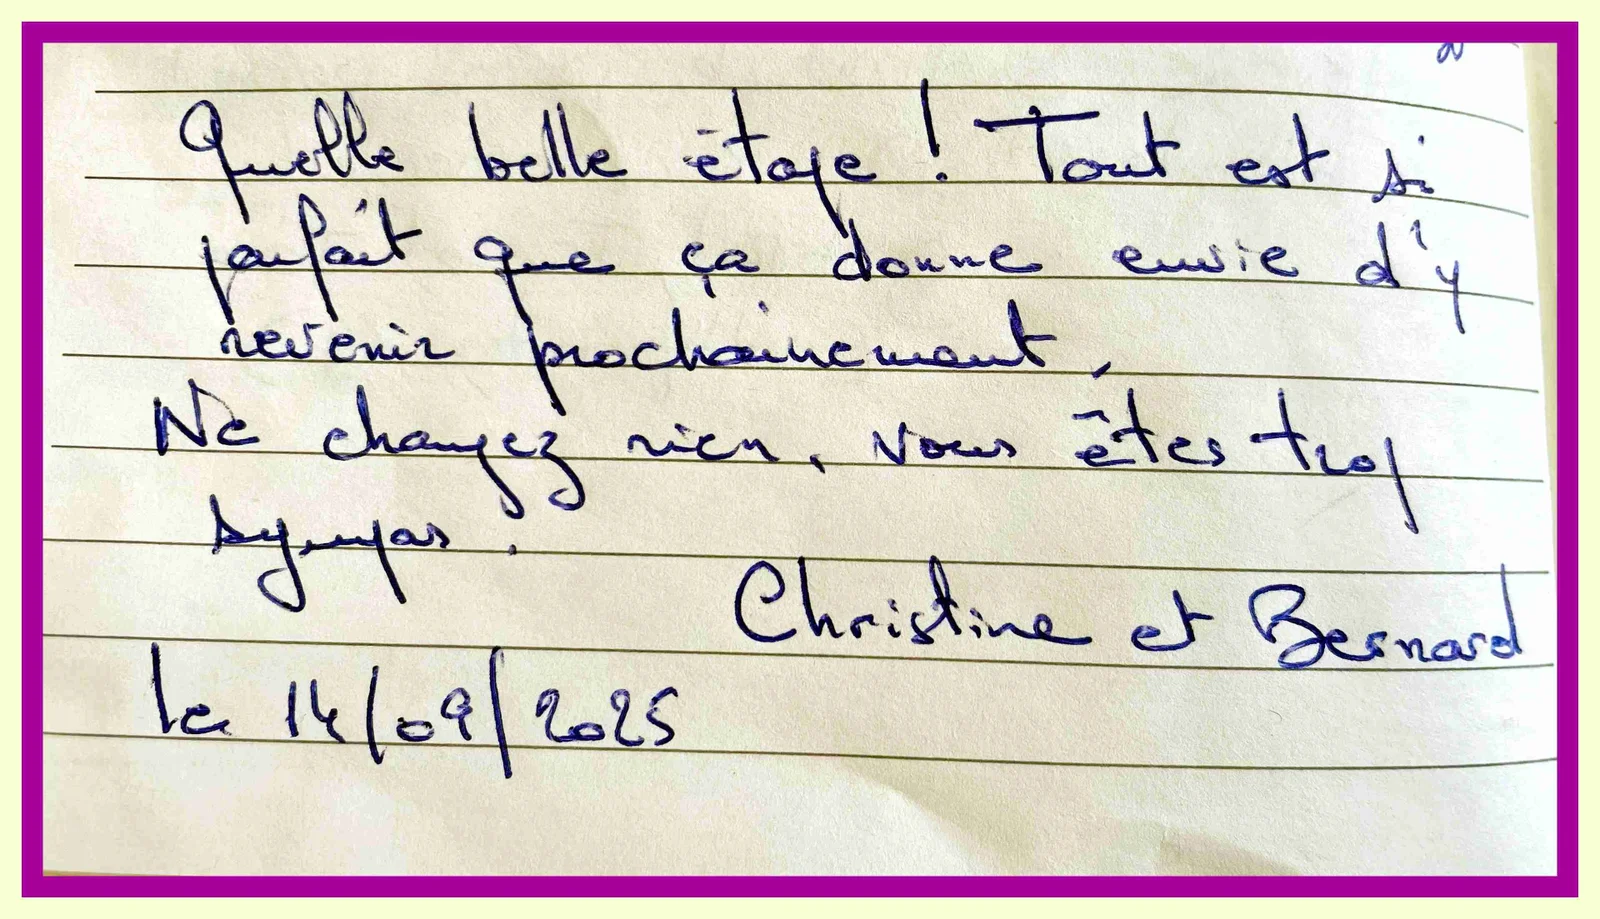 Quelle belle étape ! Tout est si
parfait que ça donne envie d'y
revenir prochainement.
Ne changez rien, vous êtes trop
sympas.
Christine et Bernard
le 14/09/2025